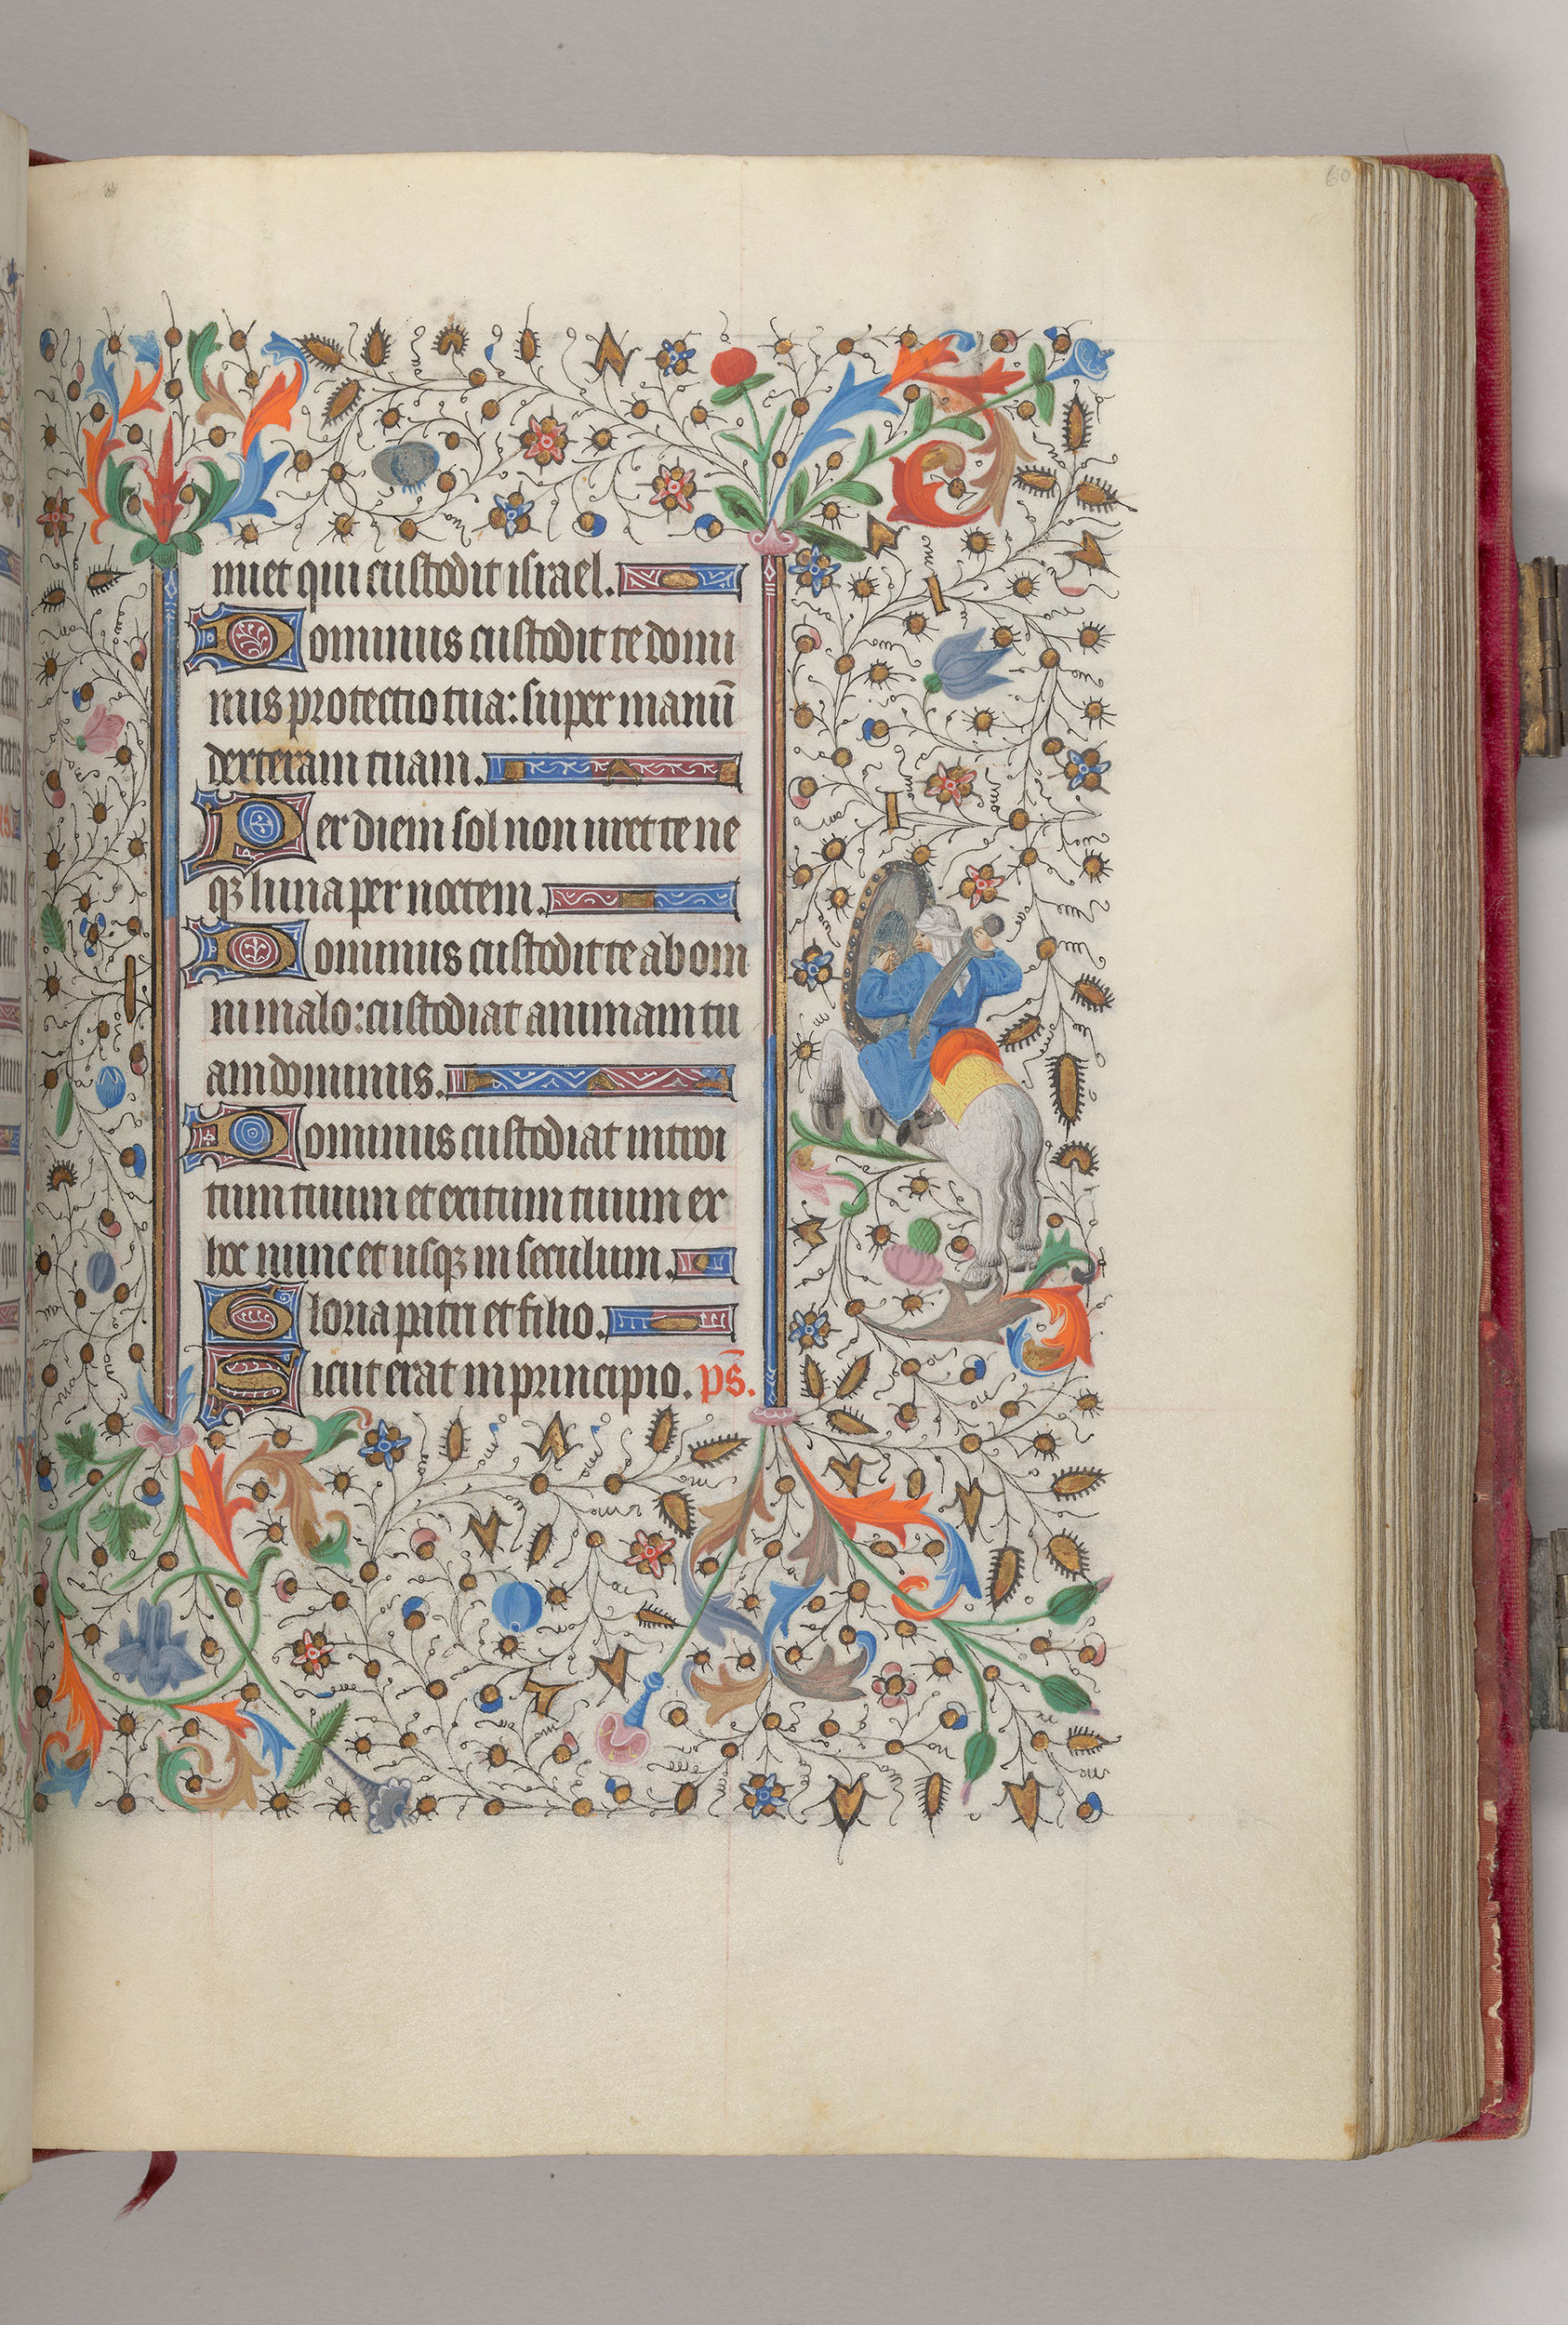 60
miet qui custodit israel.
Dominus custodit te domi
nus protectio tua: super manū
dexteram tuam.
Per diem sol non uret te ne
qꝫ luna per noctem.
Dominus custodit te ab om
ni malo: custodiat animam tu
am dominus.
Dominus custodiat introi
tum tuum et exitum tuum ex
hoc nunc et usqꝫ in seculum.
Gloria patri et filio.
Sicut erat in principio. ps̄.